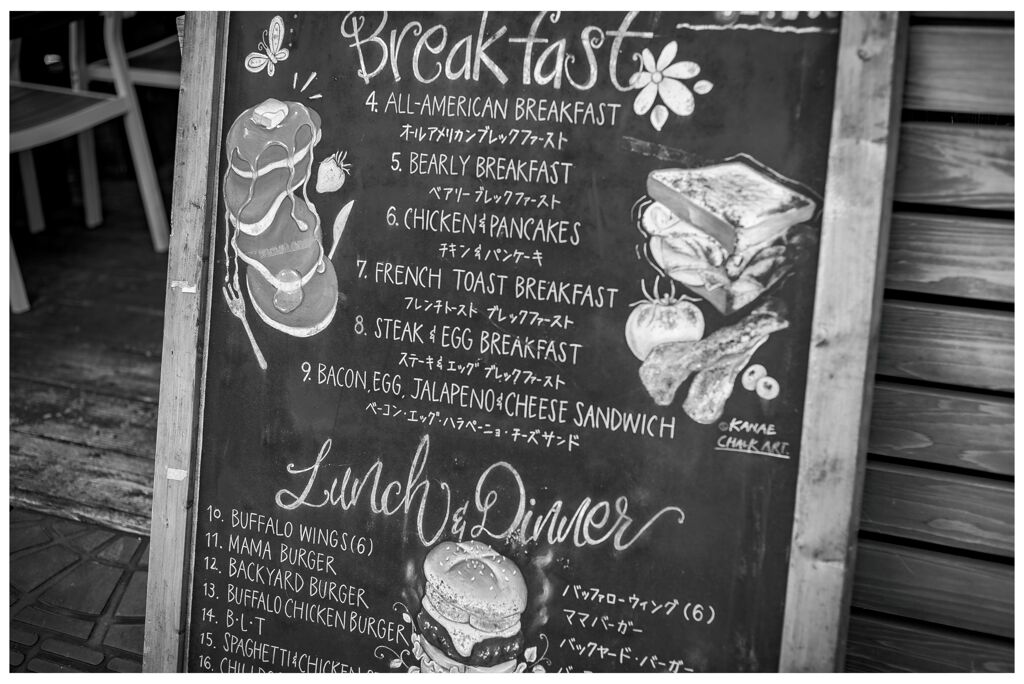 Breakfast
4. ALL-AMERICAN BREAKFAST
オールアメリカンブレックファースト
5. BEARLY BREAKFAST
ベアリーブレックファースト
6. CHICKEN & PANCAKES
チキン & パンケーキ
7. FRENCH TOAST BREAKFAST
フレンチトースト ブレックファースト
8. STEAK & EGG BREAKFAST
ステーキ & エッグ ブレックファースト
9. BACON, EGG, JALAPENO & CHEESE SANDWICH
ベーコン・エッグ・ハラペーニョ・チーズサンド
©KANAE
CHALK ART.
Lunch & Dinner
10. BUFFALO WINGS (6)
11. MAMA BURGER
12. BACKYARD BURGER
13. BUFFALO CHICKEN BURGER
14. B・L・T
15. SPAGHETTI & CHICKEN
16.
バッファローウィング (6)
ママバーガー
バックヤード・バーガー